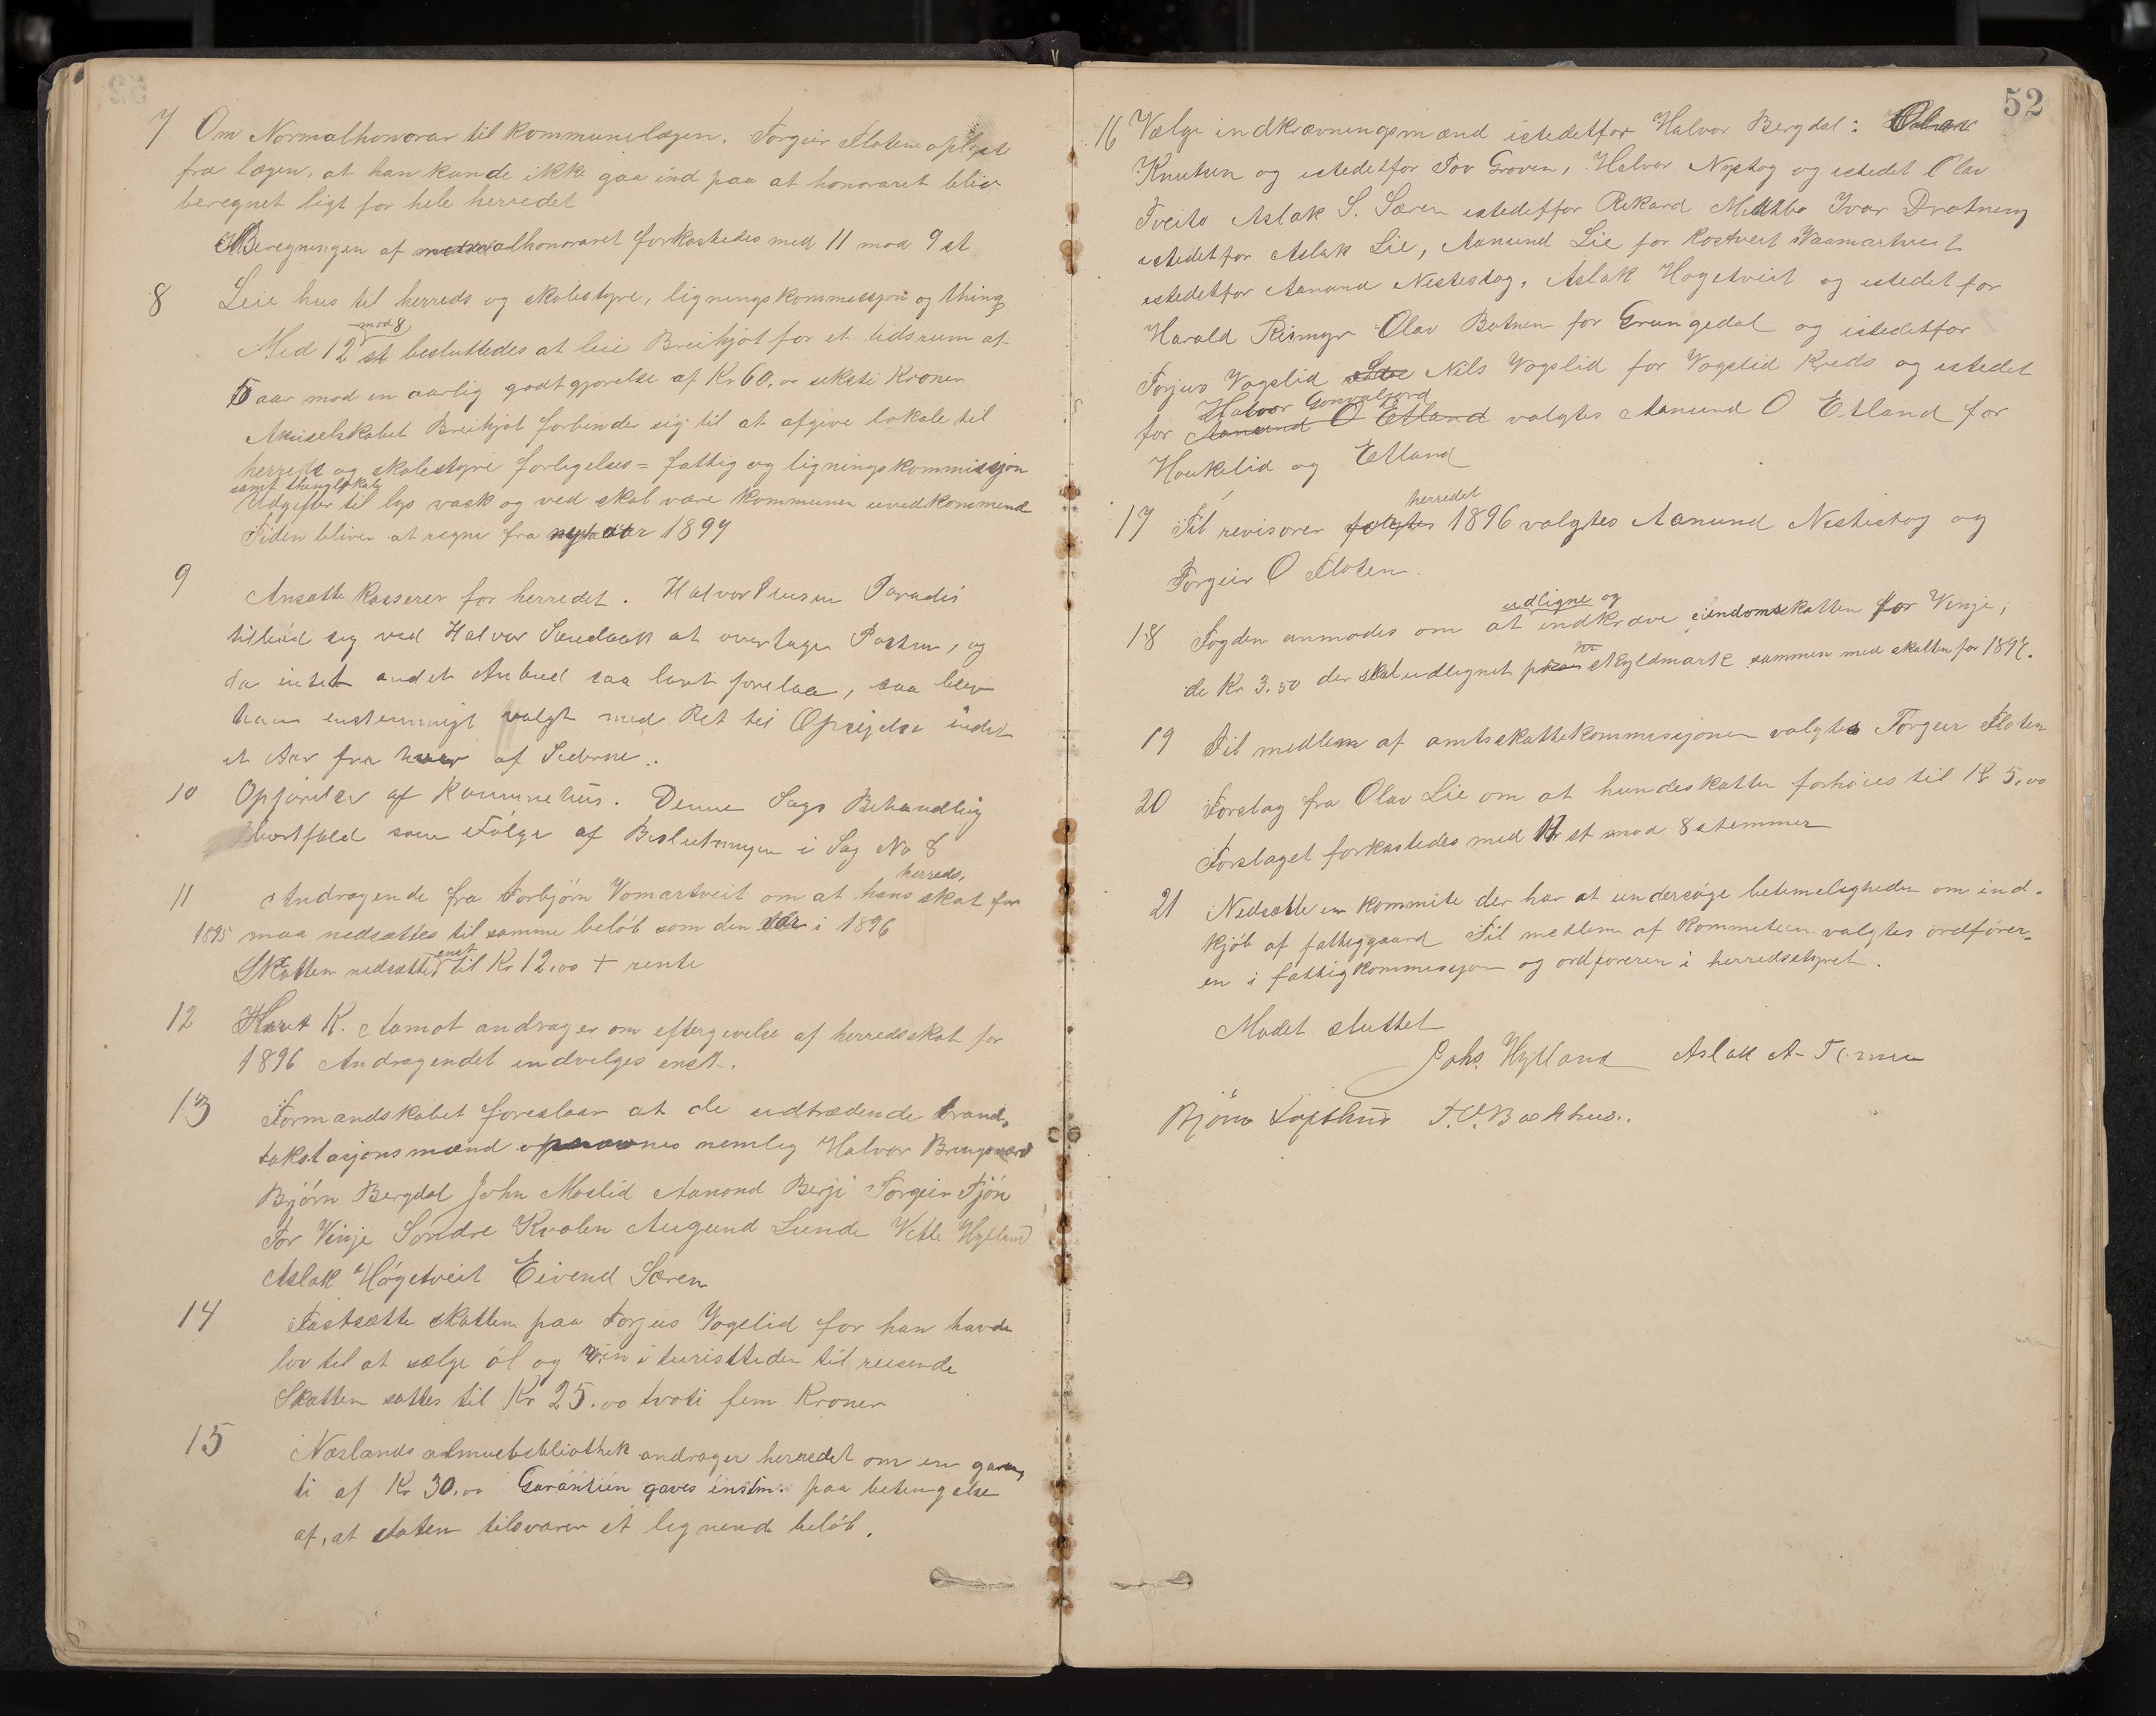 7 Om Normalhonorar til kommunelægen. Torgeir Floten oplyste
fra lægen, at han kunde ikke gaa ind paa at honoraret blev
beregnet ligt for hele herredet
Beregningen af normalhonoraret forkastedes med 11 mod 9 st
8 Leie hus til herreds og skolestyre, ligningskommissjon og thing
mod 8
Med 12 st besluttedes at leie Breihjøt for et tidsrum af
5 aar mod en aarlig godtgjørelse af Kr 60.00 seksti Kroner
Aktieselskabet Breihjøt forbinder sig til at afgive lokale til
herreds og skolestyre forligelses= fattig og ligningskommissjon
samt thinglokale
Udgifter til lys vask og ved skal være kommunen uvedkommende
Tiden bliver at regne fra nytaar 1897
9 Ansætte Kasserer for herredet. Halvor Olsen Paradis
tilbød sig ved Halvor Sandaak at overtage Posten, og
da intet andet Anbud saa lavt forelaa, saa blev
han enstemmigt valgt med Ret til Opsigelse inden
et Aar fra hver af Siderne.
10 Opførelse af Kommunehus. Denne Sags Behandling
bortfald som Følge af Beslutningen i Sag No 8
herreds,
11 Andragende fra Torbjørn Vomartveit om at hans skat for
1895 maa nedsættes til samme beløb som den er i 1896
enst
Skatten nedsættes til Kr 12.00 + rente
12 Knut K. Aamot andrager om eftergivelse af herredsskat for
1896 Andragendet indvilges enst.
13 Formandskabet foreslaar at de udtrædende brand-
takstasjonsmænd opnævnes nemlig Halvor Bringsværd
Bjørn Bergdal John Moslid Aanond Berji Torgeir Tjøn
Tor Vinje Søndre Kvalen Augund Lunde Vetle Hylland
Aslak Høgetveit Eivend Særen
14 Fastsætte skatten paa Torjus Vogslid for han havde
lov til at sælge øl og vin i turisttiden til reisende
Skatten sattes til Kr 25.00 tvoti fem Kroner
15 Næslands almuebibliothek andrager herredet om en garan-
ti af Kr 30.00 Garantien gaves enstm. paa betingelse
af, at staten tilsvarer et lignende beløb.
52
16 Vælge indkrævningsmænd istedetfor Halvor Bergdal: Olav
Knutsen og istedetfor Tov Groven, Halvor Nystog og istedet Olav
Tveito Aslak S. Særen istedetfor Rikard Midtbø Ivar Drotning
istedetfor Aslak Lie, Aanund Lie for Rostveit Vaamartveit
istedetfor Aanund Nistestog, Aslak Høgetveit og istedet for
Harald Rismyr Olav Botnen for Grungedal og istedetfor
Torjus Vogslid Nils Vogslid for Vogslid Kreds og istedet
Halvor Gonvaljord
for Aanund O Etland valgtes Aanund O Etland for
Haukelid og Etland
herredet
17 Til revisorer folgtes 1896 valgtes Aanund Nistestog og
Torgeir O Floten.
udligne og
18 Fogden anmodes om at indkræve eiendomsskatten for Vinje,
pr
de Kr 3.50 der skal udlignet skyldmark sammen med skatten for 1897.
19 Til medlem af amtsskattekommissjonen valgtes Torgeir Floten
20 Forslag fra Olav Lie om at hundeskatten forhøies til Kr 5.00
Forslaget forkastedes med st mod 8 stemmer
21 Nedsætte en kommite der har at undersøge betimeligheden om ind-
kjøb af fattiggaard Til medlem af kommiteen valgtes ordfører-
en i fattigkommissjon og ordføreren i herredsstyret.
Mødet sluttet
Johs. Hylland Aslak A.
Bjørn Lofthus T. O. Bækhus..